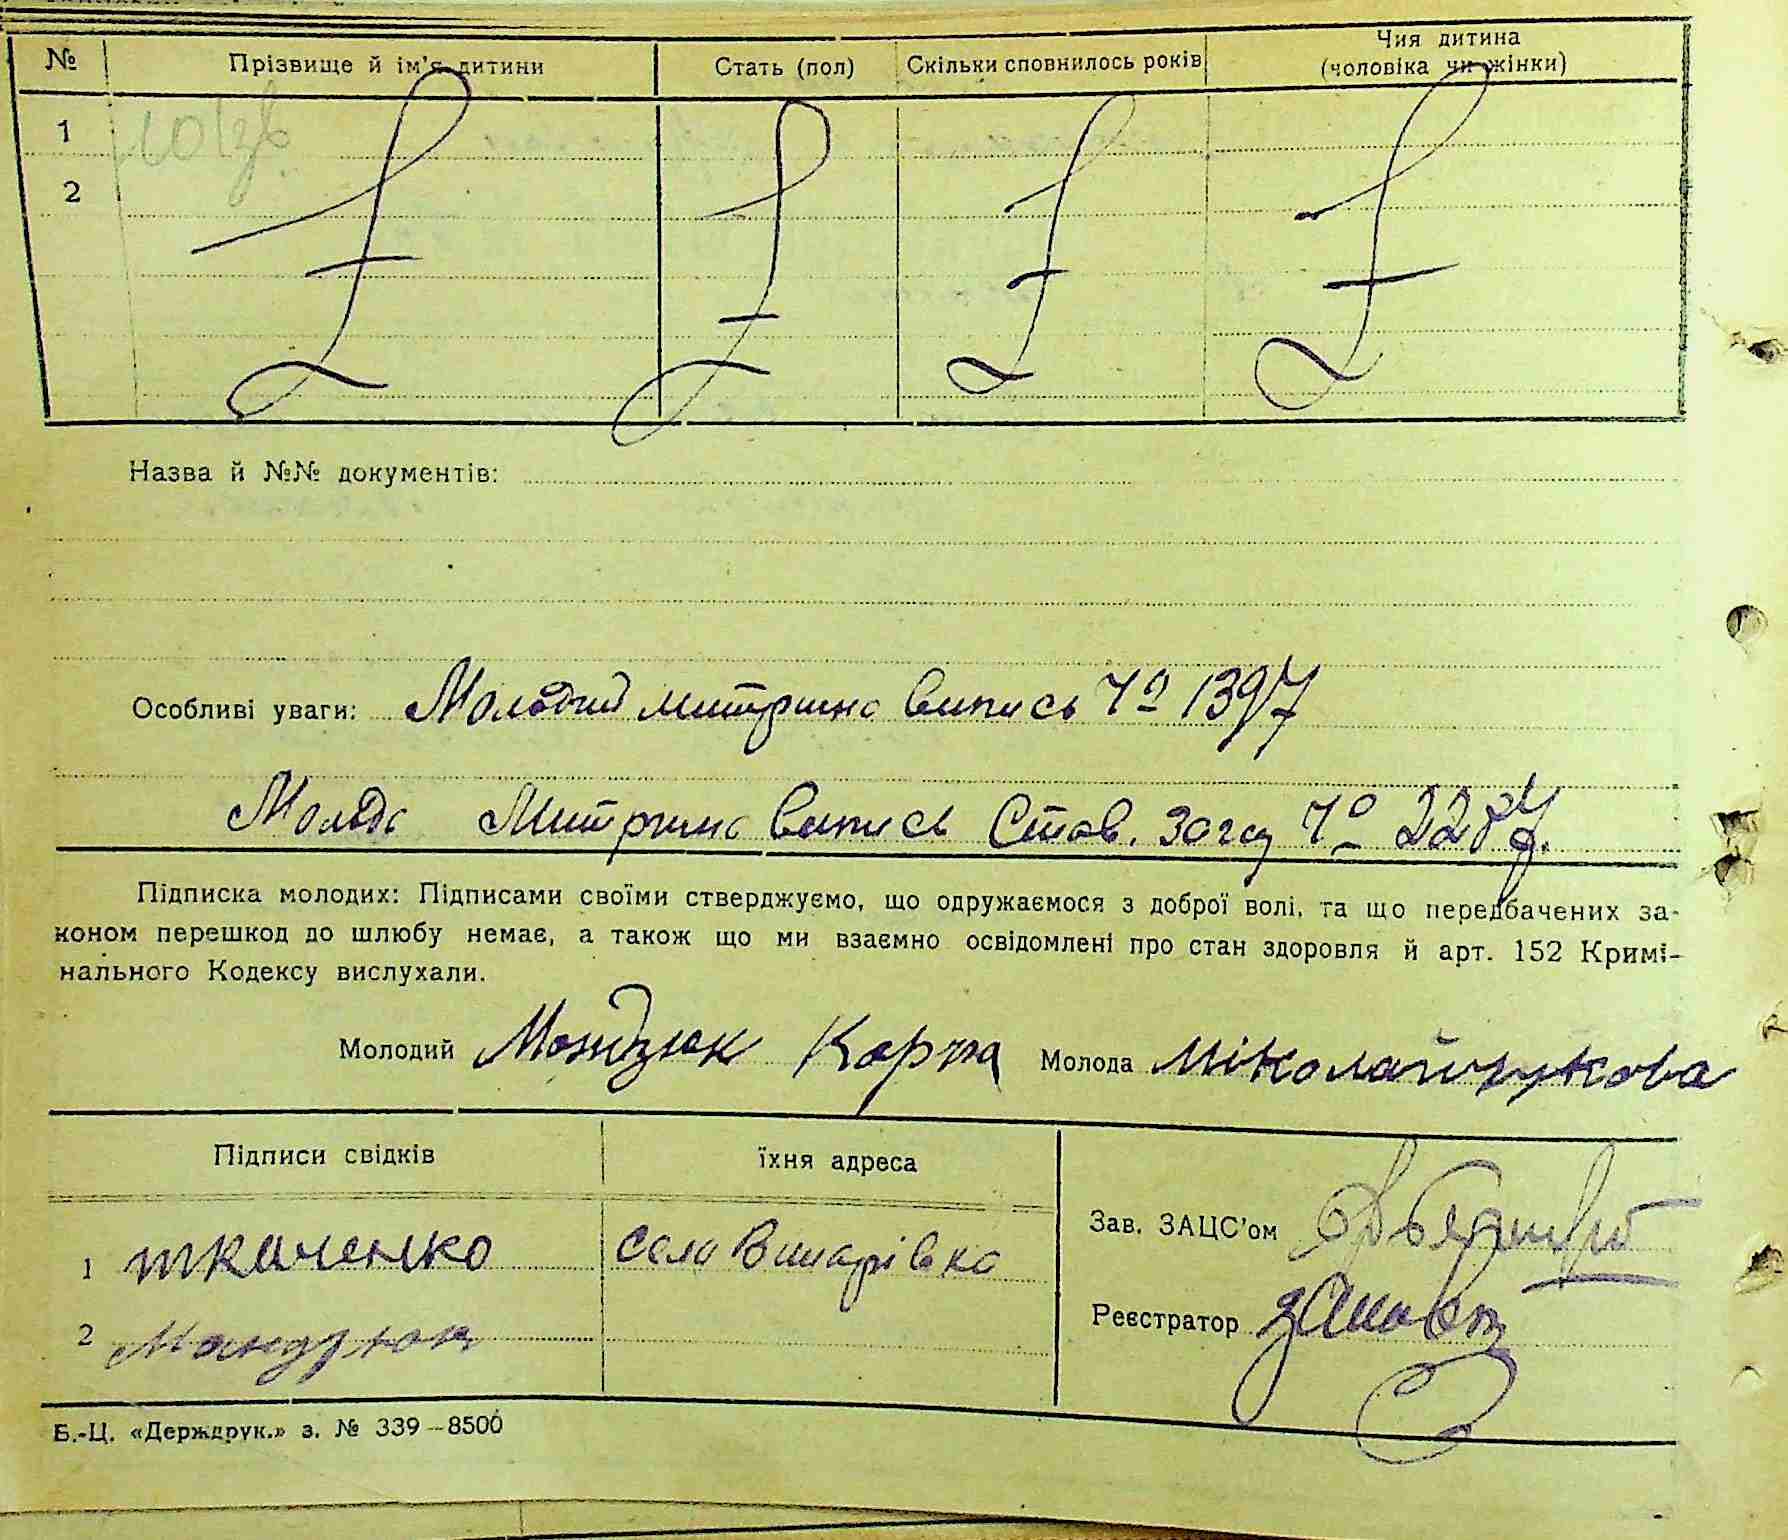 № Прізвище й ім'я дитини Стать (пол) Скільки сповнилось років Чия дитина (чоловіка чи жінки)
1
2
Назва й №№ документів:
Особливі уваги: Молодий митрична випись № 1397
Молода Митрична Випись Став. Загс № 2287.
Підписка молодих: Підписами своїми стверджуємо, що одружаємося з доброї волі, та що передбачених за-
коном перешкод до шлюбу немає, а також що ми взаємно освідомлені про стан здоровля й арт. 152 Кримі-
нального Кодексу вислухали.
Молодий Мондзюк Карпа Молода Міколайчукова
Підписи свідків їхня адреса
Зав. ЗАЦС'ом
1 ткаченко село Винарівка
Реєстратор
2
Б.-Ц. «Держдрук.» з. № 339–8500